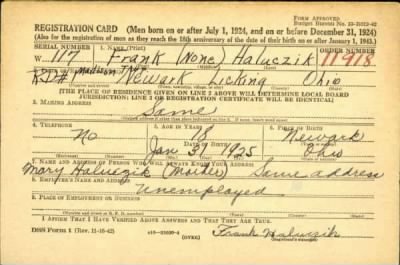 Form Approved
REGISTRATION CARD (Men born on or after July 1, 1924, and on or before December 31, 1924)
(Also for the registration of men as they reach the 18th anniversary of the date of their birth on or after January 1, 1943.)
SERIAL NUMBER 1. NAME (Print) ORDER NUMBER
W 117 Frank (None) Haluczik 11918
Madison
Newark Licking Ohio
(THE PLACE OF RESIDENCE GIVEN ON LINE 2 ABOVE WILL DETERMINE LOCAL BOARD
JURISDICTION; LINE 2 OF REGISTRATION CERTIFICATE WILL BE IDENTICAL)
3. MAILING ADDRESS
Same
4. TELEPHONE 5. AGE IN YEARS 6. PLACE OF BIRTH
No 18 Newark
DATE OF BIRTH
Jan 31 1925 Ohio
7. NAME AND ADDRESS OF PERSON WHO WILL ALWAYS KNOW YOUR ADDRESS
Mary Haluczik (Mother) Same address
8. EMPLOYER'S NAME AND ADDRESS
Unemployed
9. PLACE OF EMPLOYMENT OR BUSINESS
I AFFIRM THAT I HAVE VERIFIED ABOVE ANSWERS AND THAT THEY ARE TRUE.
DSS Form 1 (Rev. 11-16-42) (OVER) Frank Haluczik
(Registrant's signature)